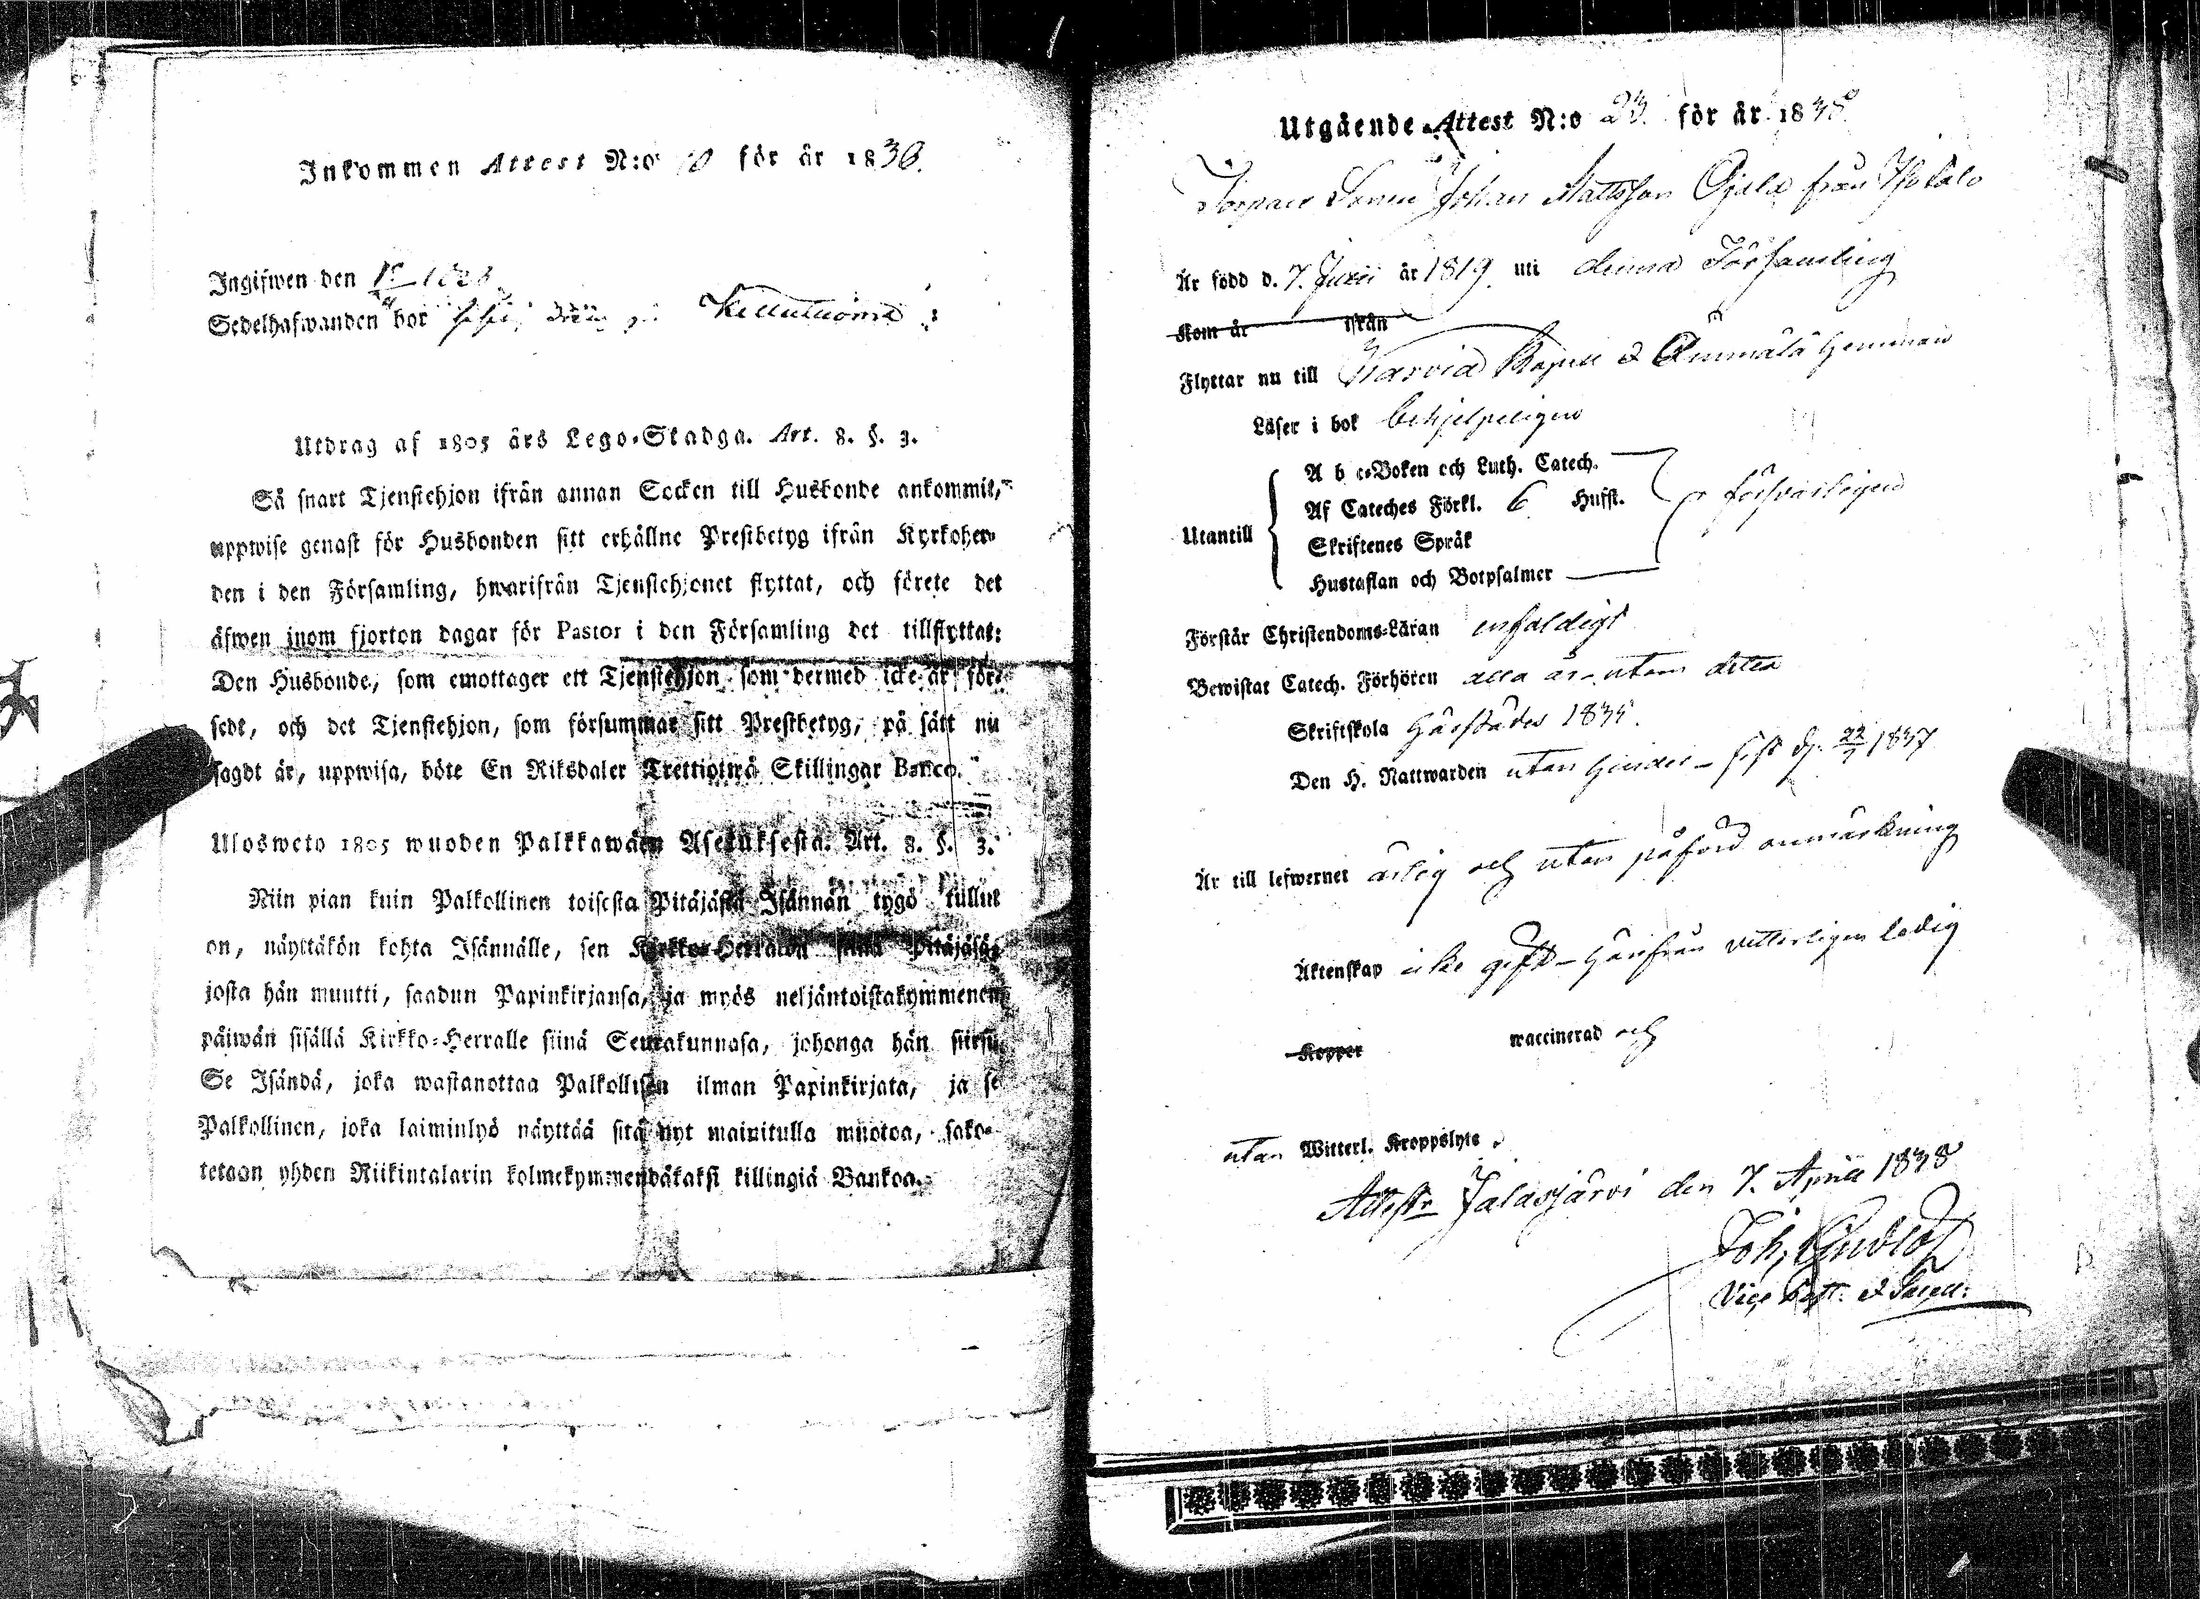 Inkommen Attest N:o 10 för år 1836.
Ingifwen den
Sedelhafwanden bor
Utdrag af 1805 års Lego-Stadga. Art. 8. §. 3.
Så snart Tjenstehjon ifrån annan Socken till Husbonde ankommit,
uppwise genast för Husbonden sitt erhållne Prestbetyg ifrån Kyrkoher-
den i den Församling, hwarifrån Tjenstehjonet flyttat, och förete det
äfwen inom fjorton dagar för Pastor i den Församling det tillflyttat:
Den Husbonde, som emottager ett Tjenstehjon som dermed icke är för-
sedt, och det Tjenstehjon, som försummar sitt Prestbetyg, på sätt nu
sagdt är, uppwisa, böte En Riksdaler Trettiotwå Skillingar Banco.
Ulosweto 1805 wuoden Palkkawäen Asetuksesta. Art. 8. §. 3.
Niin pian kuin Palkollinen toisesta Pitäjästä Isännän tygö tullut
on, näyttäkön kohta Isännälle, sen Kirkko-Herralda siinä Pitäjäsä,
josta hän muutti, saadun Papinkirjansa, ja myös neljäntoistakymmenen
päiwän sisällä Kirkko-Herralle siinä Seurakunnasa, johonga hän siirsi.
Se Isändä, joka wastanottaa Palkollisen ilman Papinkirjata, ja se
Palkollinen, joka laiminlyö näyttää sitä nyt mainitulla muotoa, sako-
tetaan yhden Riikintalarin kolmekymmendäkaksi killingiä Bankoa.
Utgående Attest N:o 23. för år 1838
Torpare Sonen Johan Mattsson Ojala från
Är född d. 7. Junii år 1819. uti denna Församling
Kom år ifrån
Flyttar nu till Karvia Kapell & Ämmälä Hemman
Läser i bok behjelpeligen
Utantill
A b c-Boken och Luth. Catech.
Af Cateches Förkl. 6 Hufst.
Skriftenes Språk
Hustaflan och Botpsalmer
försvarligen
Förstår Christendoms-Läran enfaldigt
Bewistat Catech. Förhören alla år utom detta
Skriftskola härstädes 1835.
Den H. Nattwarden utan hinder - sist d. 22/7 1837
Är till lefwernet ärlig och utan påförd anmärkning
Äktenskap icke gift - härifrån vitterligen ledig
Kopper waccinerad och
utan Witterl. Kroppslyte.
Attest. Jalasjärvi den 7. April 1838
Joh.
Vice Past. & Sacell: